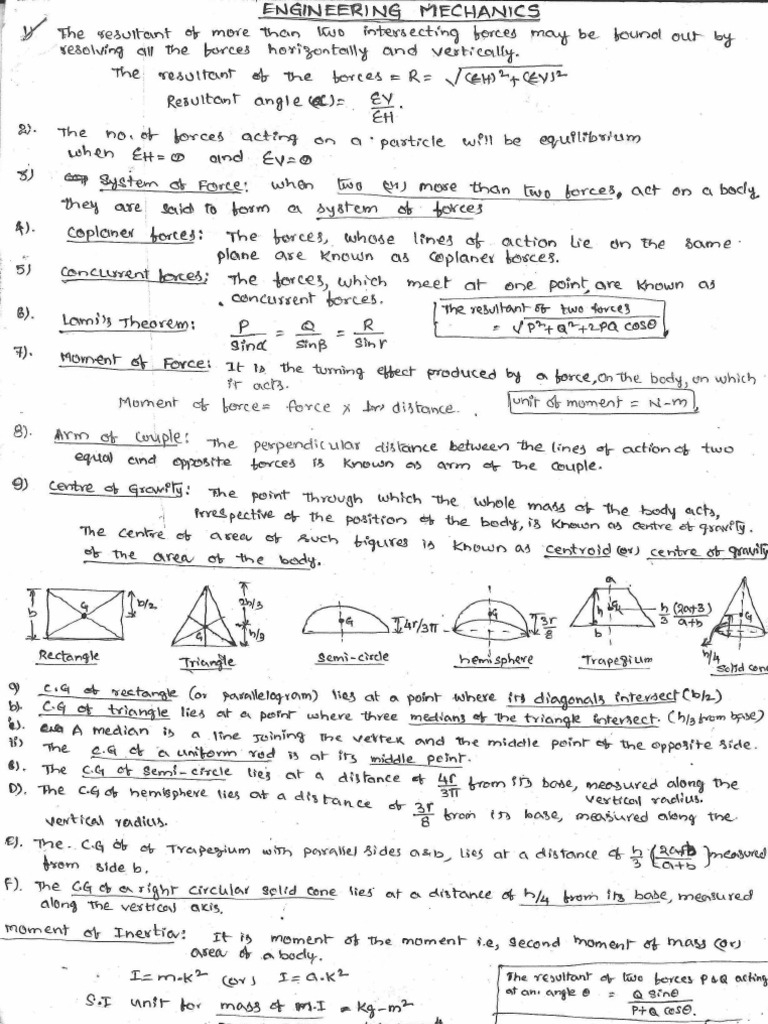 ENGINEERING MECHANICS
1) The resultant of more than two intersecting forces may be found out by
resolving all the forces horizontally and vertically.
The resultant of the forces = R = √(ΣH)²+(ΣV)²
Resultant angle (α) = ΣV/ΣH.
2). The no. of forces acting on a particle will be equilibrium
when ΣH=0 and ΣV=0
3) System of Force: when two (or) more than two forces, act on a body
they are said to form a system of forces
4). Coplaner forces: The forces, whose lines of action lie on the same
plane are known as coplaner forces.
5) Concurrent forces: The forces, which meet at one point, are known as
concurrent forces.
6). Lami's Theorem: P/sinα = Q/sinβ = R/sinr
The resultant of two forces
= √P²+Q²+2PQ cosθ
7). Moment of Force: It is the turning effect produced by a force, on the body, on which
it acts.
Moment of force = force x distance.
unit of moment = N-m
8). Arm of Couple: The perpendicular distance between the lines of action of two
equal and opposite forces is known as arm of the couple.
9) Centre of Gravity: The point through which the whole mass of the body acts,
irrespective of the position of the body, is known as centre of gravity.
The centre of area of such figures is known as centroid (or) centre of gravity
of the area of the body.
b G b/2
G 2h/3 h/3
G 4r/3π
G 3r/8
a h G b h/3 (2a+3)/a+b
G h/4
Rectangle
Triangle
Semi-circle
hemisphere
Trapezium
Solid cone
a) C.G of rectangle (or parallelogram) lies at a point where its diagonals intersect (b/2)
b). C.G of triangle lies at a point where three medians of the triangle intersect. (h/3 from base)
A median is a line joining the vertex and the middle point of the opposite side.
ii) The C.G of a uniform rod is at its middle point.
The C.G of semi-circle lies at a distance of 4r/3π from its base, measured along the
vertical radius.
D). The C.G of hemisphere lies at a distance of 3r/8 from its base, measured along the
vertical radius.
E). The C.G of Trapezium with parallel sides a&b, lies at a distance of h/3 (2a+b/a+b) measured
from side b.
F). The CG of a right circular solid cone lies at a distance of h/4 from its base, measured
along the vertical axis.
Moment of Inertia: It is moment of the moment i.e, second moment of mass (or)
area of a body.
I=m.k² (or) I=a.k²
S.I unit for mass of M.I = kg-m²
The resultant of two forces P&Q acting
at an angle θ = Q sinθ/P+Q cosθ.